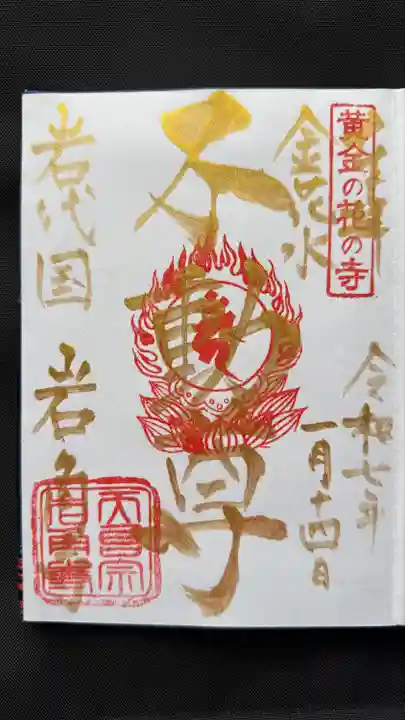 黄金の花の寺
奉拝
金花水
令和七年
一月十四日
不動尊
岩代国 岩角寺
天台宗
岩角寺